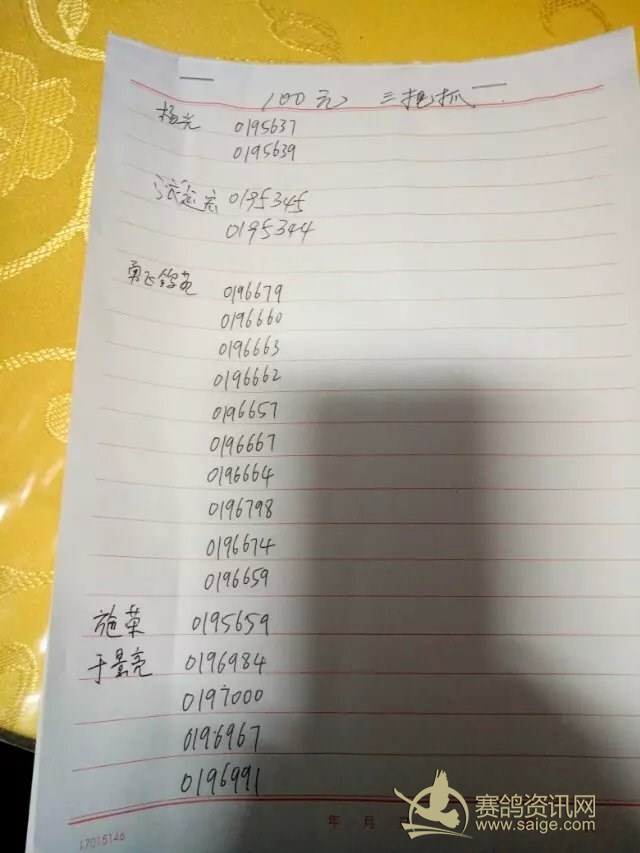 100元 三把抓
杨光 0195637
0195639
张志宏 0195345
0195344
勇飞 0196679
0196660
0196663
0196662
0196657
0196667
0196664
0196798
0196674
0196659
施荣 0195659
于景亮 0196984
0197000
0196967
0196991
年 月
17015146
赛鸽资讯网
www.saige.com